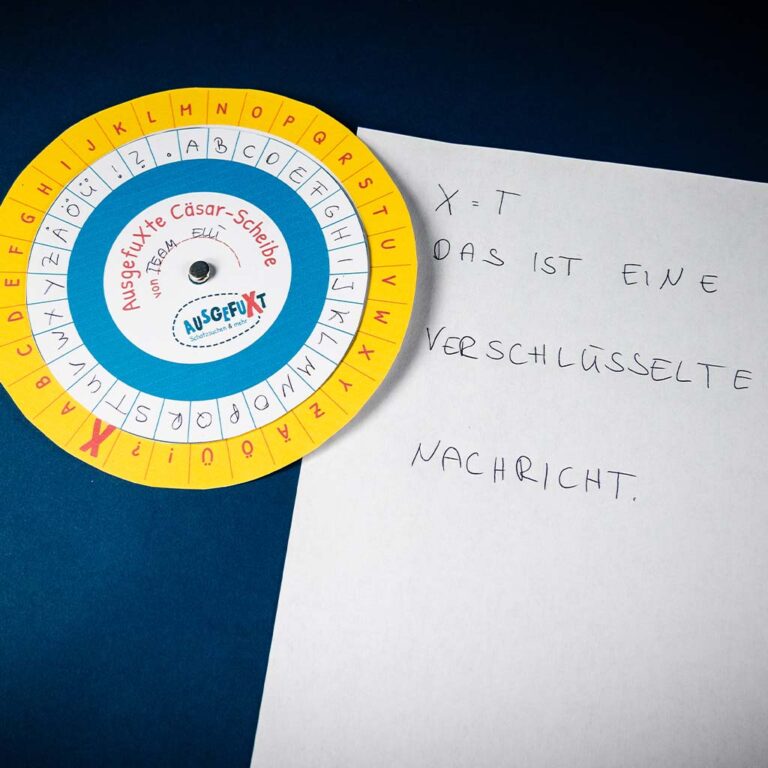 A B C D E F G H I J K L M N O P Q R S T U V W X Y Z Ä Ö Ü ! ? X
A B C D E F G H I J K L M N O P Q R S T U V W X Y Z Ä Ö Ü ! ? .
AusgefuXte Cäsar-Scheibe
von TEAM ELLI
AUSGEFUXT
Schatzsuchen & mehr
X = T
DAS IST EINE
VERSCHLÜSSELTE
NACHRICHT.